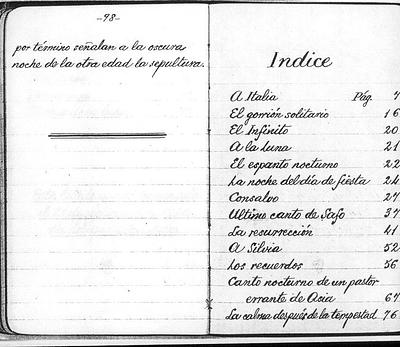 -98-
por término señalan a la oscura
noche de la otra edad la sepultura.
Indice
A Italia Pág. 7
El gorrión solitario 16
El Infinito 20
A la luna 21
El espanto nocturno 22
La noche del día de fiesta 24
Consalvo 27
Ultimo canto de Safo 37
La resurrección 41
A Silvia 52
Los recuerdos 56
Canto nocturno de un pastor
errante de Asia 67
La calma después de la tempestad 76